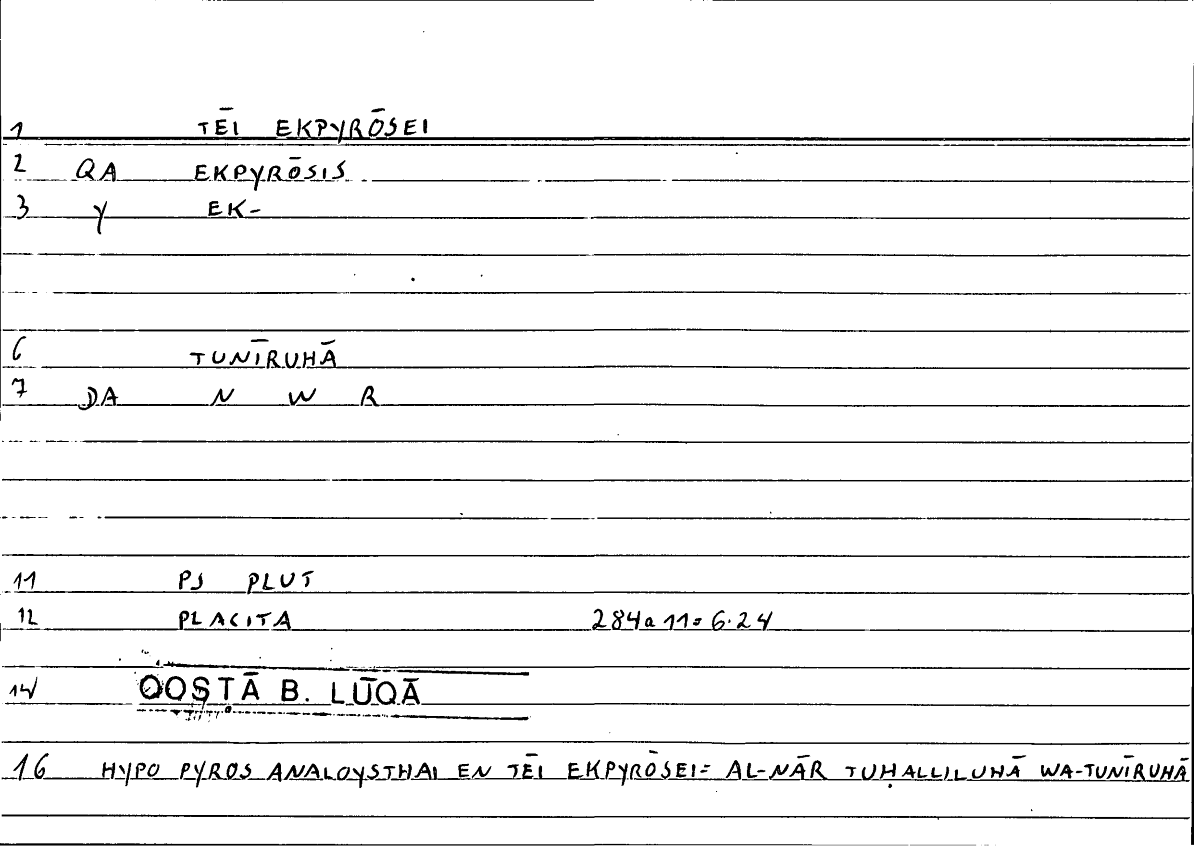 1 TĒI EKPYRŌSEI
2 QA EKPYRŌSIS
3 Y EK-
6 TUNĪRUHĀ
7 DA N W R
11 PS PLUT
12 PLACITA 284a11=6.24
14 QOSṬĀ B. LŪQĀ
16 HYPO PYROS ANALOYSTHAI EN TĒI EKPYRŌSEI= AL-NĀR TUḤALLILUHĀ WA-TUNĪRUHĀ